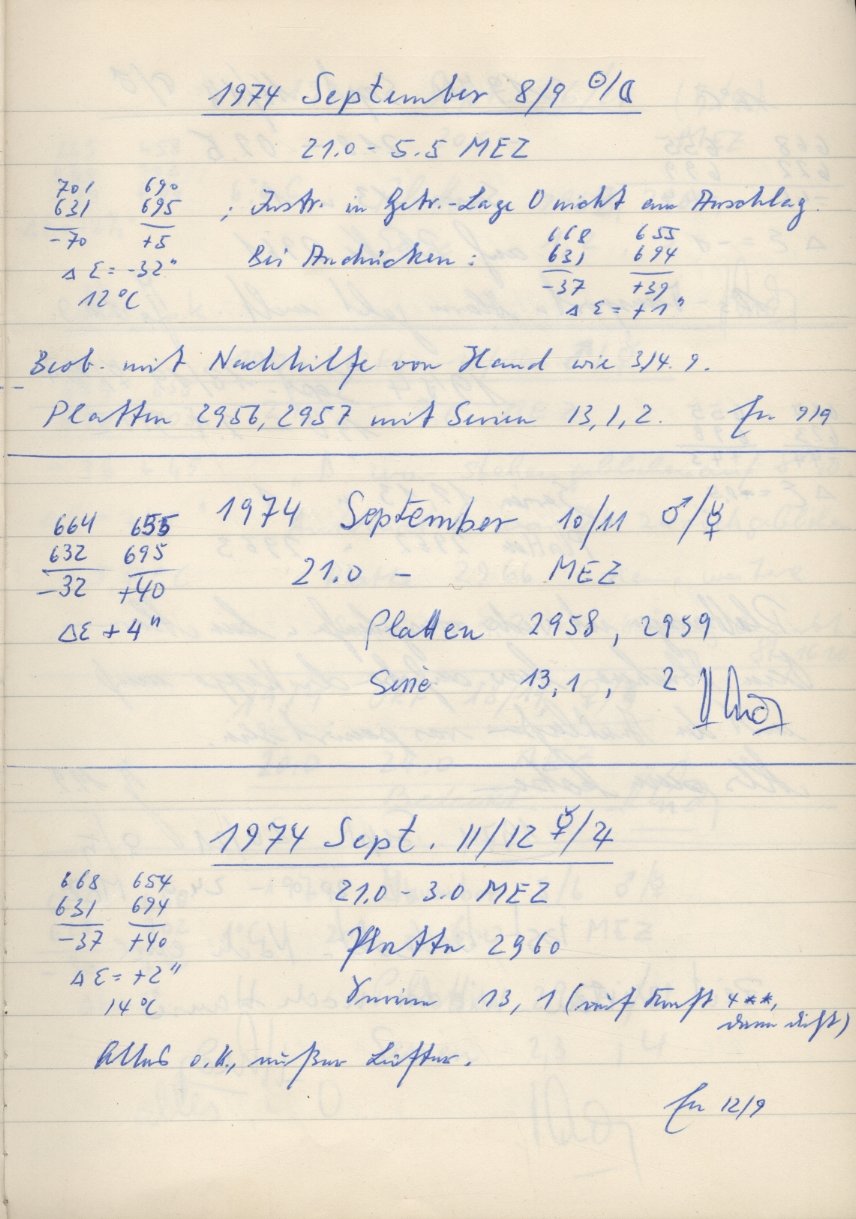 1974 September 8/9 ☉/☾
21.0 - 5.5 MEZ
701 690
631 695 ; Instr. in Getr.-Lage 0 nicht am Anschlag.
-70 +5
Δ Ɛ = -32"
12°C
Bei Andrücken :
668 655
631 694
-37 +39
Δ Ɛ = +1"
Beob. mit Nachhilfe von Hand wie 3/4. 9.
Platten 2956, 2957 mit Serien 13, 1, 2. 9/9
1974 September 10/11 ♂/☿
664 655
632 695
-32 +40
ΔƐ + 4"
21.0 - MEZ
Platten 2958, 2959
Serie 13, 1, 2
1974 Sept. 11/12 ☿/♃
668 654
631 694
-37 +40
Δ Ɛ = +2"
14°C
21.0 - 3.0 MEZ
Platte 2960
Serien 13, 1 ( 4 **,
dann dicht)
Alles o.k., außer Lüfter.
12/9